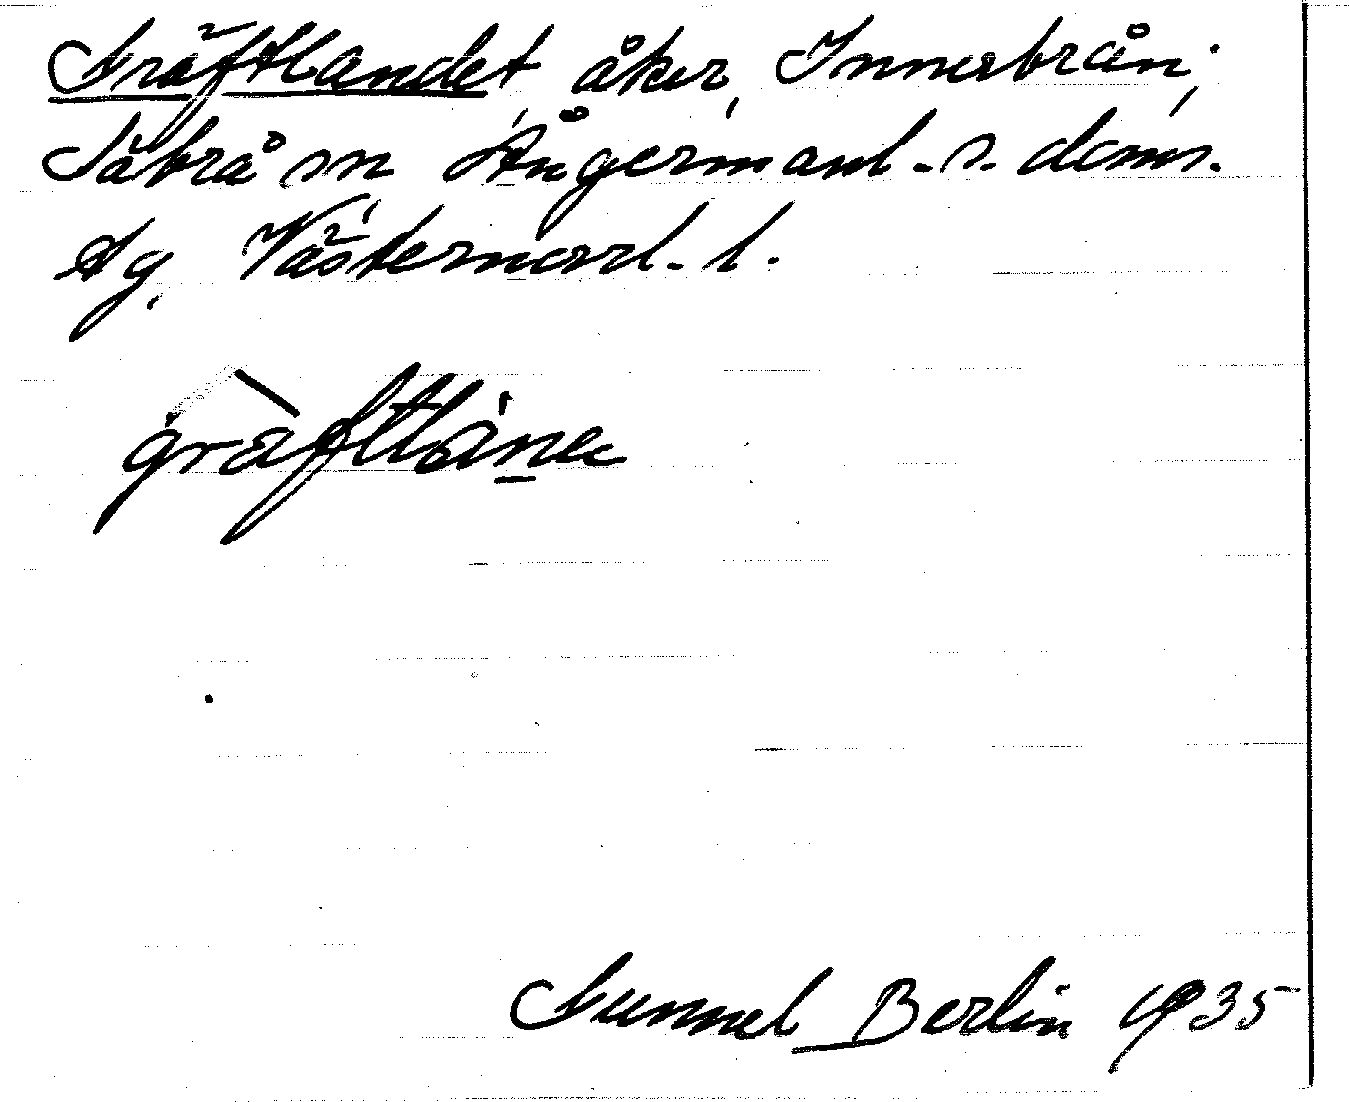 Gräftlandet åker, Innerbrån,
Säbrå sn Ångermanl. s. doms.
Ag. Västernorrl. l.
gräftlånec
Gunnel Berlin 1935